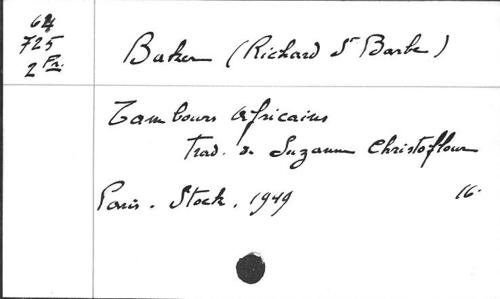 64
725
2 Fr.
Baker (Richard St Barbe)
Tambours Africains
Trad. de Suzanne Christoflour
Paris - Stock, 1949 16